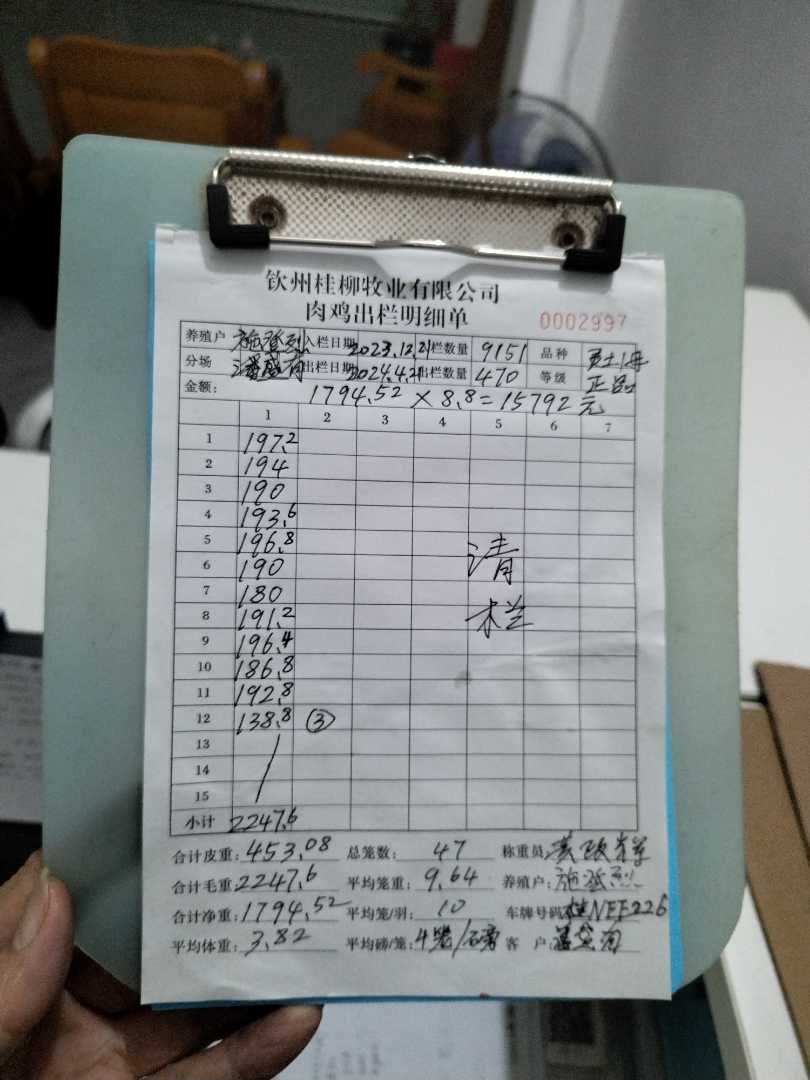 钦州桂柳牧业有限公司
肉鸡出栏明细单
0002997
养殖户 施登烈 入栏日期 2023.12.21 栏数量 9151 品种
分场 潘盛有 出栏日期 2024.4.21 出栏数量 470 等级 正品
金额: 1794.52 × 8.8 = 15792元
1 2 3 4 5 6 7
1 197.2
2 194
3 190
4 193.6
5 196.8
6 190
7 180
8 191.2
9 196.4
10 186.8
11 192.8
12 138.8 ③
13
14
15
清
栏
小计 2247.6
合计皮重: 453.08 总笼数: 47 称重员:
合计毛重: 2247.6 平均笼重: 9.64 养殖户: 施登烈
合计净重: 1794.52 平均笼/羽: 10 车牌号码: 桂NEF226
平均体重: 3.82 平均磅/笼: 4笼/磅 客 户: